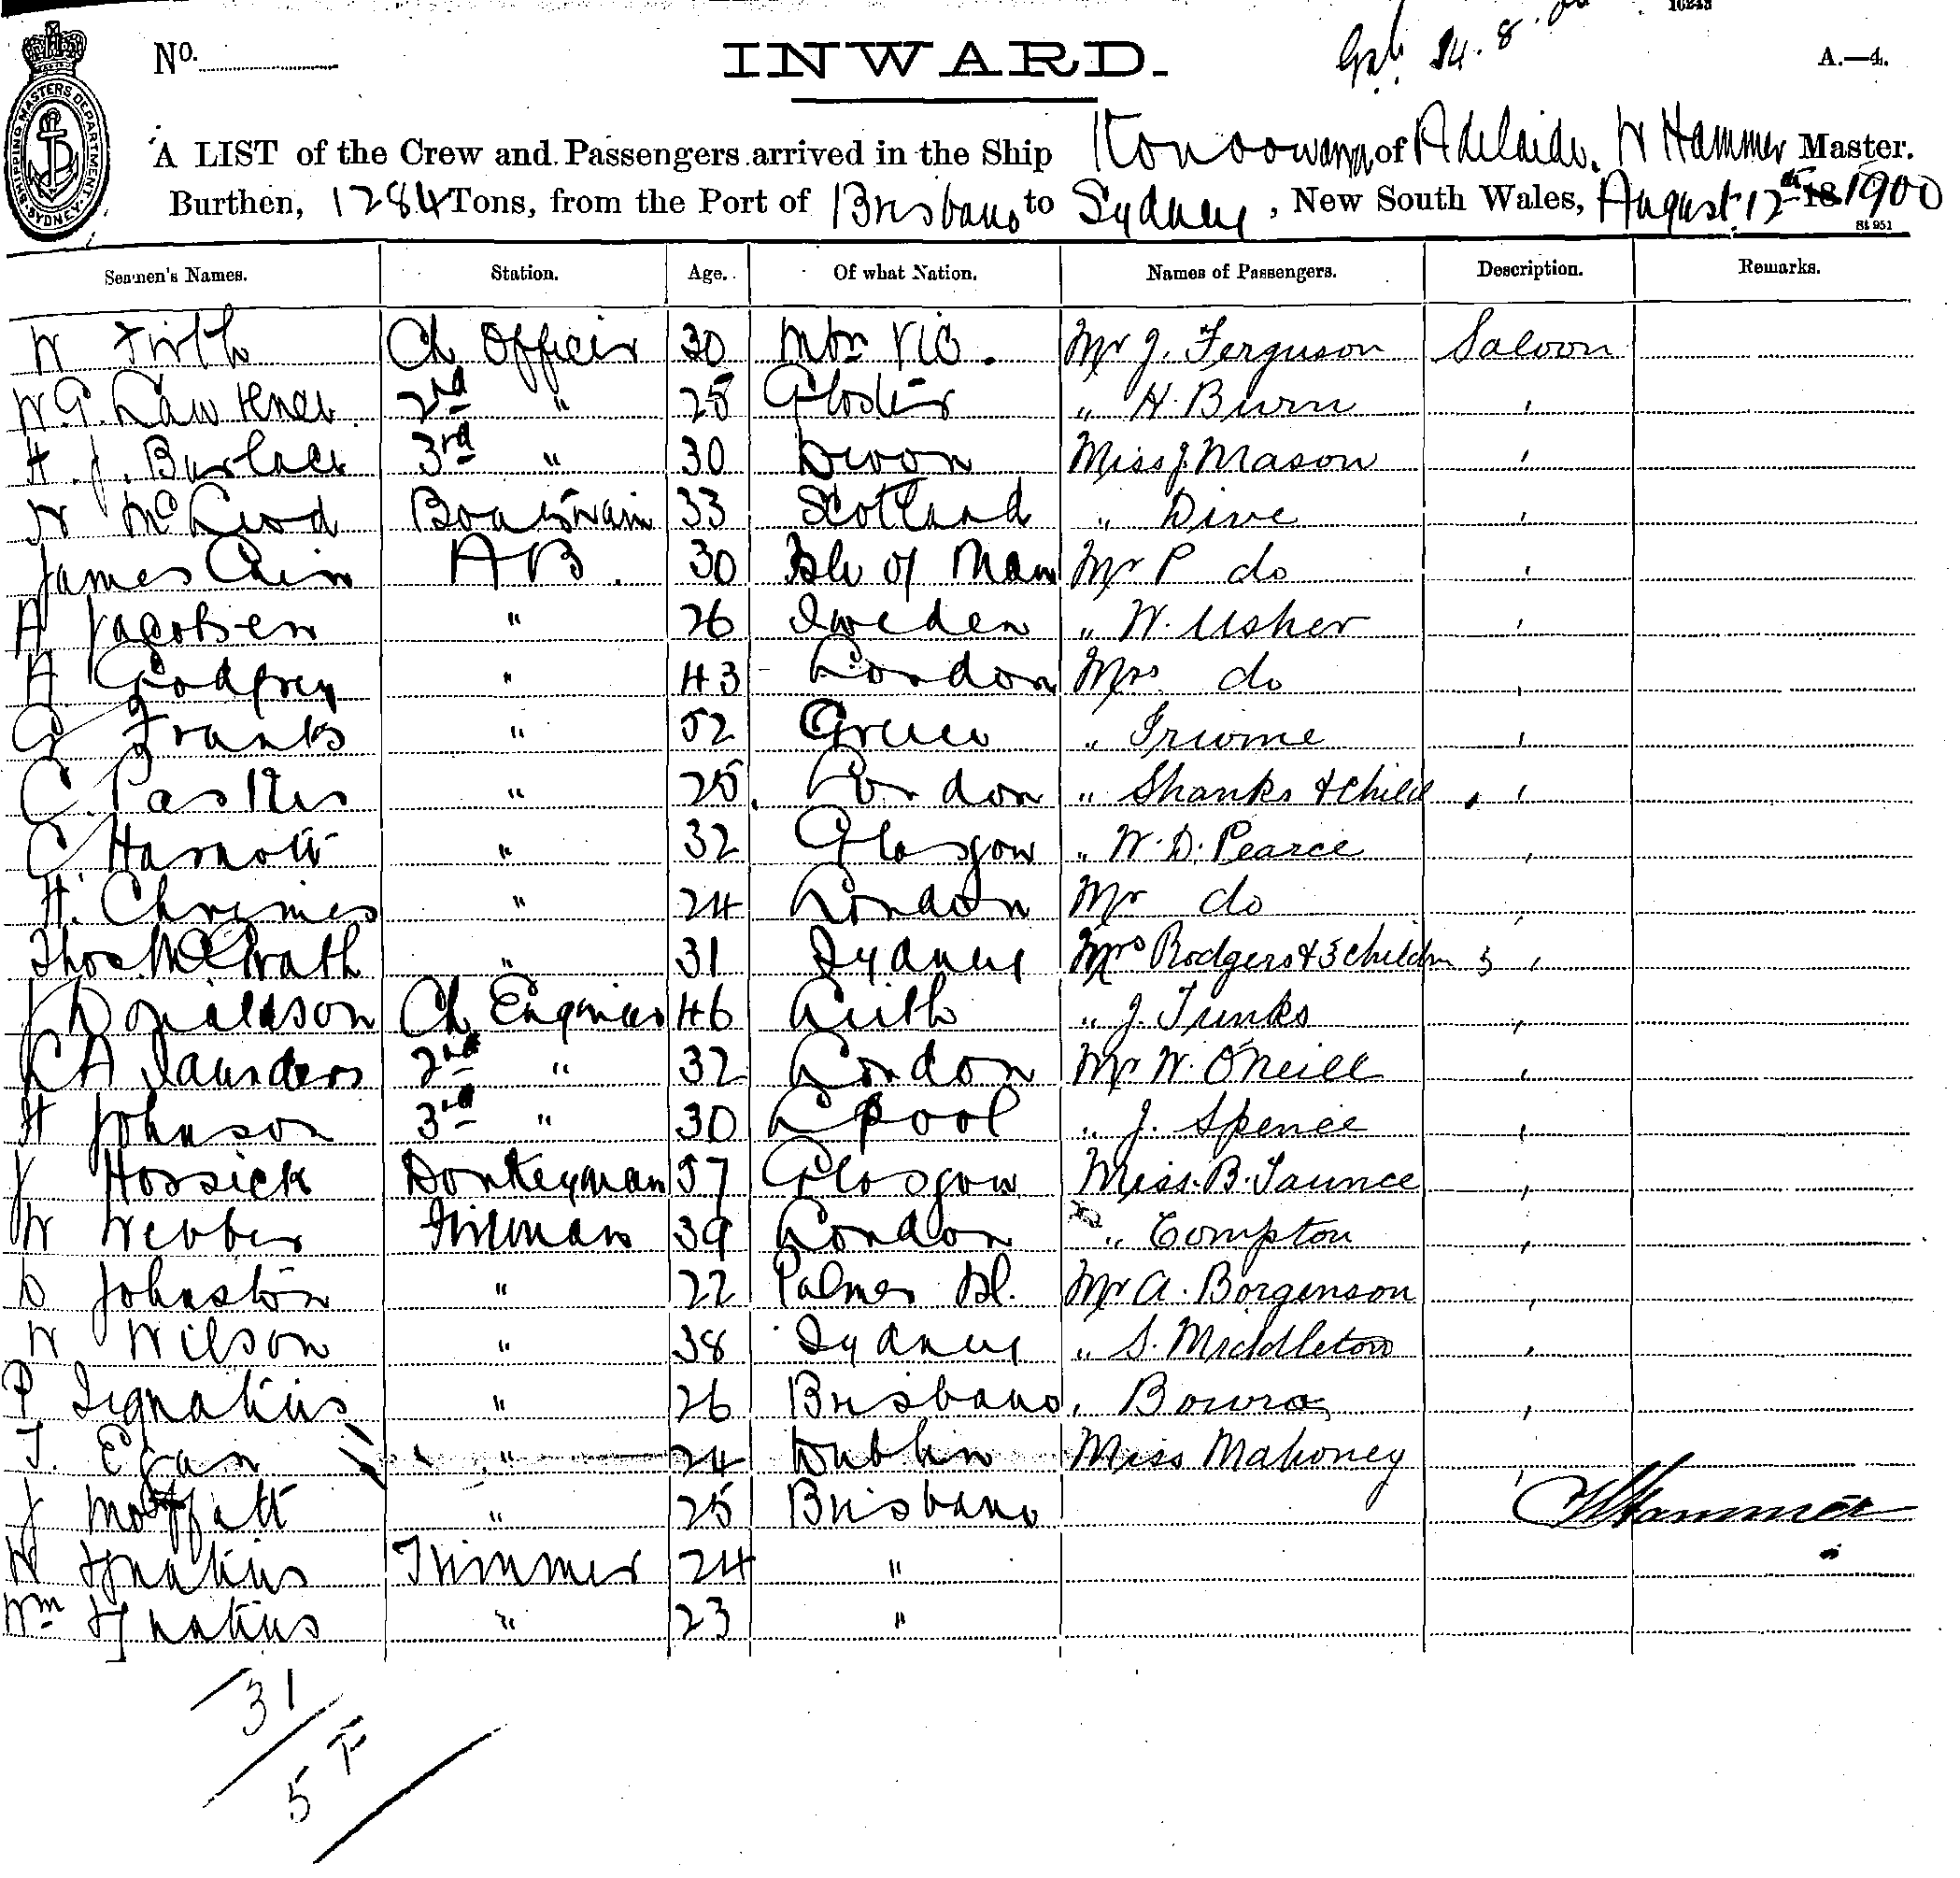 10243
No. INWARD. 14.8. A.—4.
SHIPPING MASTERS DEPARTMENT SYDNEY
A LIST of the Crew and Passengers arrived in the Ship Konoowarra of Adelaide. W Hammer Master.
Burthen, 1284 Tons, from the Port of Brisbane to Sydney, New South Wales, August 12th 18 1900
8t 951
Seamen's Names. Station. Age. Of what Nation. Names of Passengers. Description. Remarks.
W Firth Ch Officer 30 Mtn Vic. Mr J. Ferguson Saloon
W.G. 2nd " 28 Gloster " H. Burn "
H. J. 3rd " 30 Devon Miss J. Mason "
N McLeod Boatswain 33 Scotland " Dive "
James AB. 30 Isle of Man Mr P do "
A Jacobsen " 26 Sweden " W. Usher "
A Godfrey " 43 London Mrs do "
G Franks " 52 Greece " "
C. " 25 London " Shanks & Child "
C " 32 Glasgow " W. D. Pearce "
H. Chrimes " 24 London Mr do "
Thos. McGrath " 31 Sydney Mrs Rodgers & 3 childn 3 "
J Donaldson Ch Engineer 46 Leith " J. Tunks "
A Saunders 2nd " 32 London Mr W. O'Neill "
H Johnson 3rd " 30 L'pool " J. Spence "
J Hossick Donkeyman 57 Glasgow Miss B. Taunce "
W Webber Fireman 39 London " Compton "
D Johnston " 22 Palmer Isl. Mr A. Borgenson "
W Wilson " 38 Sydney " S. Middleton "
P Ignatius " 26 Brisbane " "
T. Egan " 24 Dublin Miss Mahoney
J Moffatt " 25 Brisbane Hammer
W Ignatius Trimmer 24 "
Wm Ignatius " 23 "
31
5 F